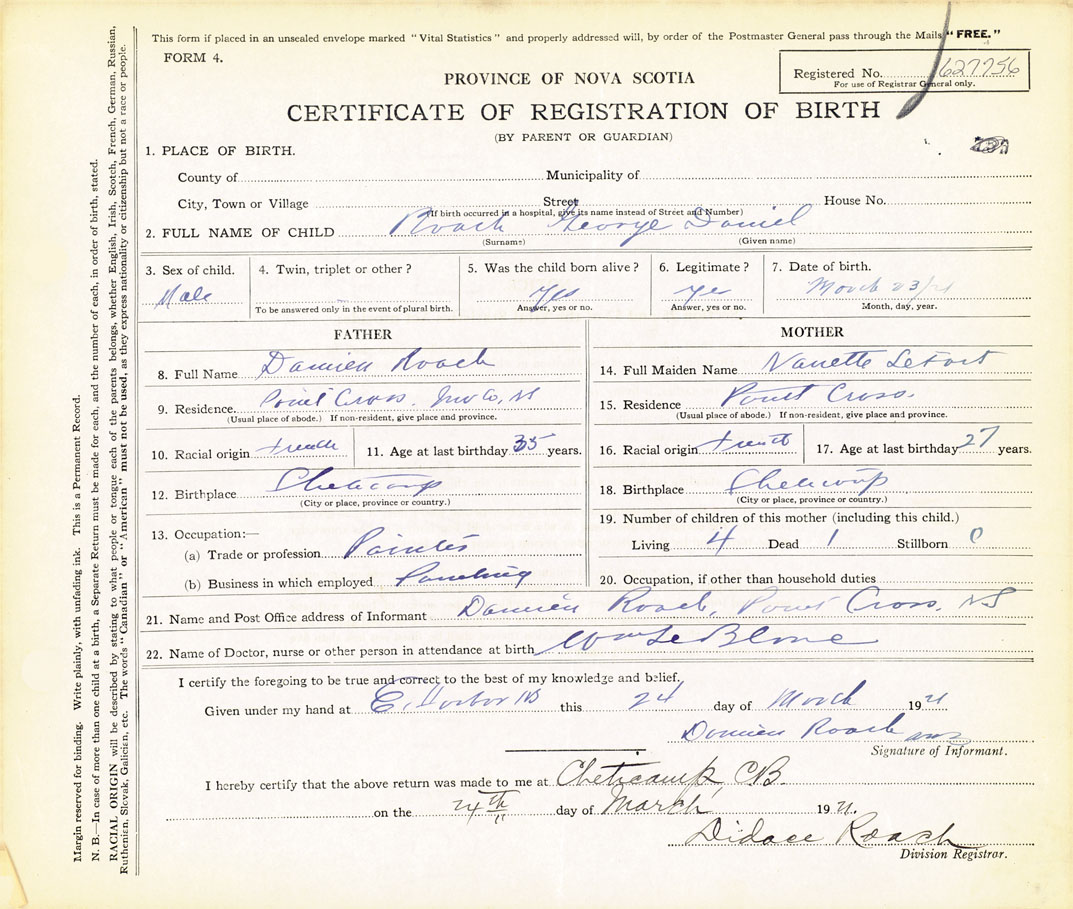 This form if placed in an unsealed envelope marked "Vital Statistics" and properly addressed will, by order of the Postmaster General pass through the Mails "FREE."
FORM 4.
Registered No. 627756
For use of Registrar General only.
PROVINCE OF NOVA SCOTIA
CERTIFICATE OF REGISTRATION OF BIRTH
(BY PARENT OR GUARDIAN)
1. PLACE OF BIRTH.
County of Municipality of
City, Town or Village Street House No.
(If birth occurred in a hospital, give its name instead of Street and Number)
2. FULL NAME OF CHILD Roach George Daniel
(Surname) (Given name)
3. Sex of child. 4. Twin, triplet or other? 5. Was the child born alive? 6. Legitimate? 7. Date of birth.
Male Yes Yes March 23/21
To be answered only in the event of plural birth. Answer, yes or no. Answer, yes or no. Month, day, year.
FATHER
8. Full Name Damien Roach
9. Residence. Point Cross. Inv Co, NS
(Usual place of abode.) If non-resident, give place and province.
10. Racial origin French 11. Age at last birthday 35 years.
12. Birthplace Cheticamp
(City or place, province or country.)
13. Occupation:—
(a) Trade or profession Painter
(b) Business in which employed
MOTHER
14. Full Maiden Name Nanette LeFort
15. Residence Point Cross.
(Usual place of abode.) If non-resident, give place and province.
16. Racial origin French 17. Age at last birthday 27 years.
18. Birthplace Cheticamp
(City or place, province or country.)
19. Number of children of this mother (including this child.)
Living 4 Dead 1 Stillborn 0
20. Occupation, if other than household duties
21. Name and Post Office address of Informant Damien Roach, Point Cross. NS
22. Name of Doctor, nurse or other person in attendance at birth Wm LeBlanc
I certify the foregoing to be true and correct to the best of my knowledge and belief.
Given under my hand at E. Harbor this 24 day of March 1921
Damien Roach
Signature of Informant.
I hereby certify that the above return was made to me at Cheticamp, C.B.
on the 24th day of March 1921.
Didace Roach
Division Registrar.
Margin reserved for binding. Write plainly, with unfading ink. This is a Permanent Record.
N. B.—In case of more than one child at a birth, a Separate Return must be made for each, and the number of each, in order of birth, stated.
RACIAL ORIGIN will be described by stating to what people or tongue each of the parents belongs, whether English, Irish, Scotch, French, German, Russian,
Ruthenian, Slovak, Galician, etc. The words "Canadian" or "American" must not be used, as they express nationality or citizenship but not a race or people.